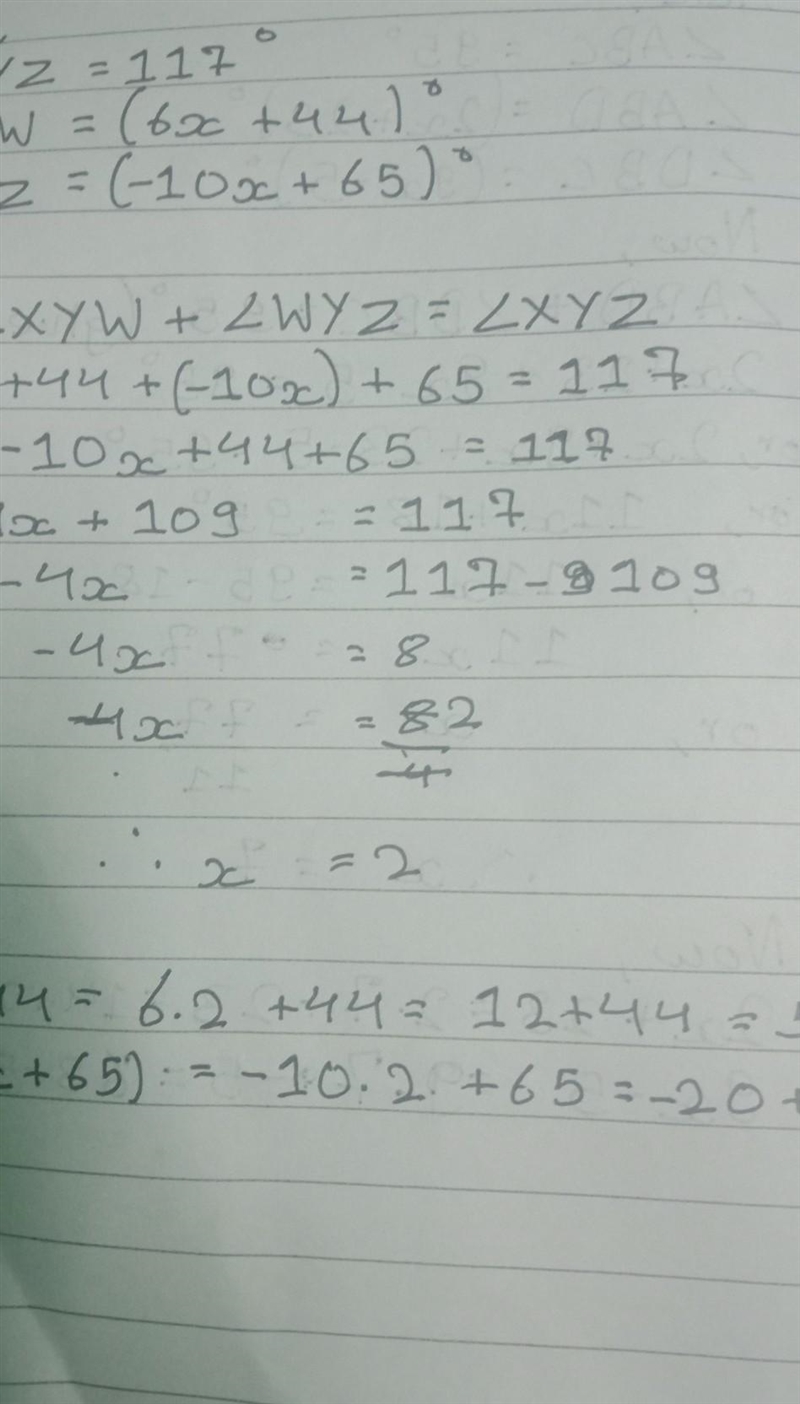 YZ = 117°
W = (6x + 44)°
Z = (-10x + 65)°
XYW + ∠WYZ = ∠XYZ
+44 + (-10x) + 65 = 117
-10x + 44 + 65 = 117
x + 109 = 117
-4x = 117 - 109
-4x = 8
-4x = 82
-4
∴ x = 2
44 = 6.2 + 44 = 12 + 44 = 5
+ 65) = -10.2 + 65 = -20 +